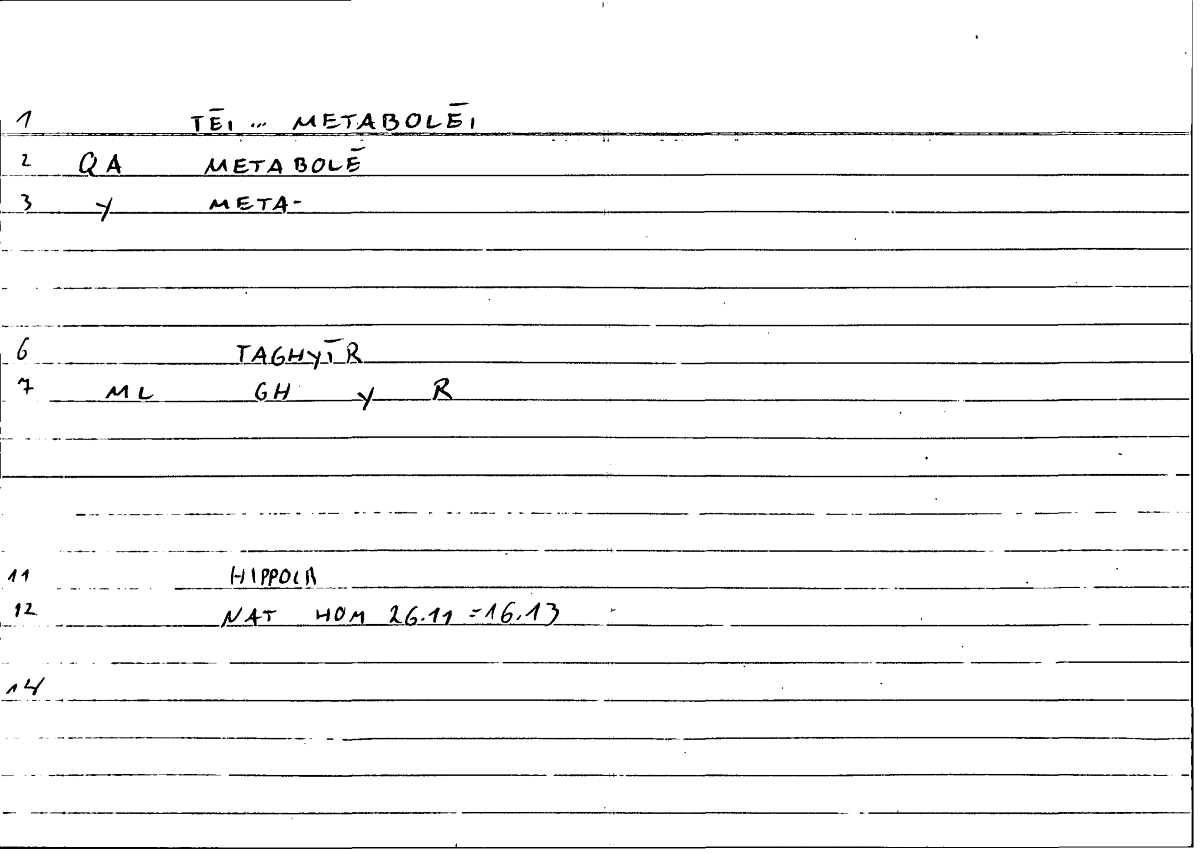 1 TĒI ... METABOLĒI
2 QA METABOLĒ
3 Y META-
6 TAGHYĪR
7 ML GH Y R
11 HIPPOCR
12 NAT HOM 26.11 =16.13
14